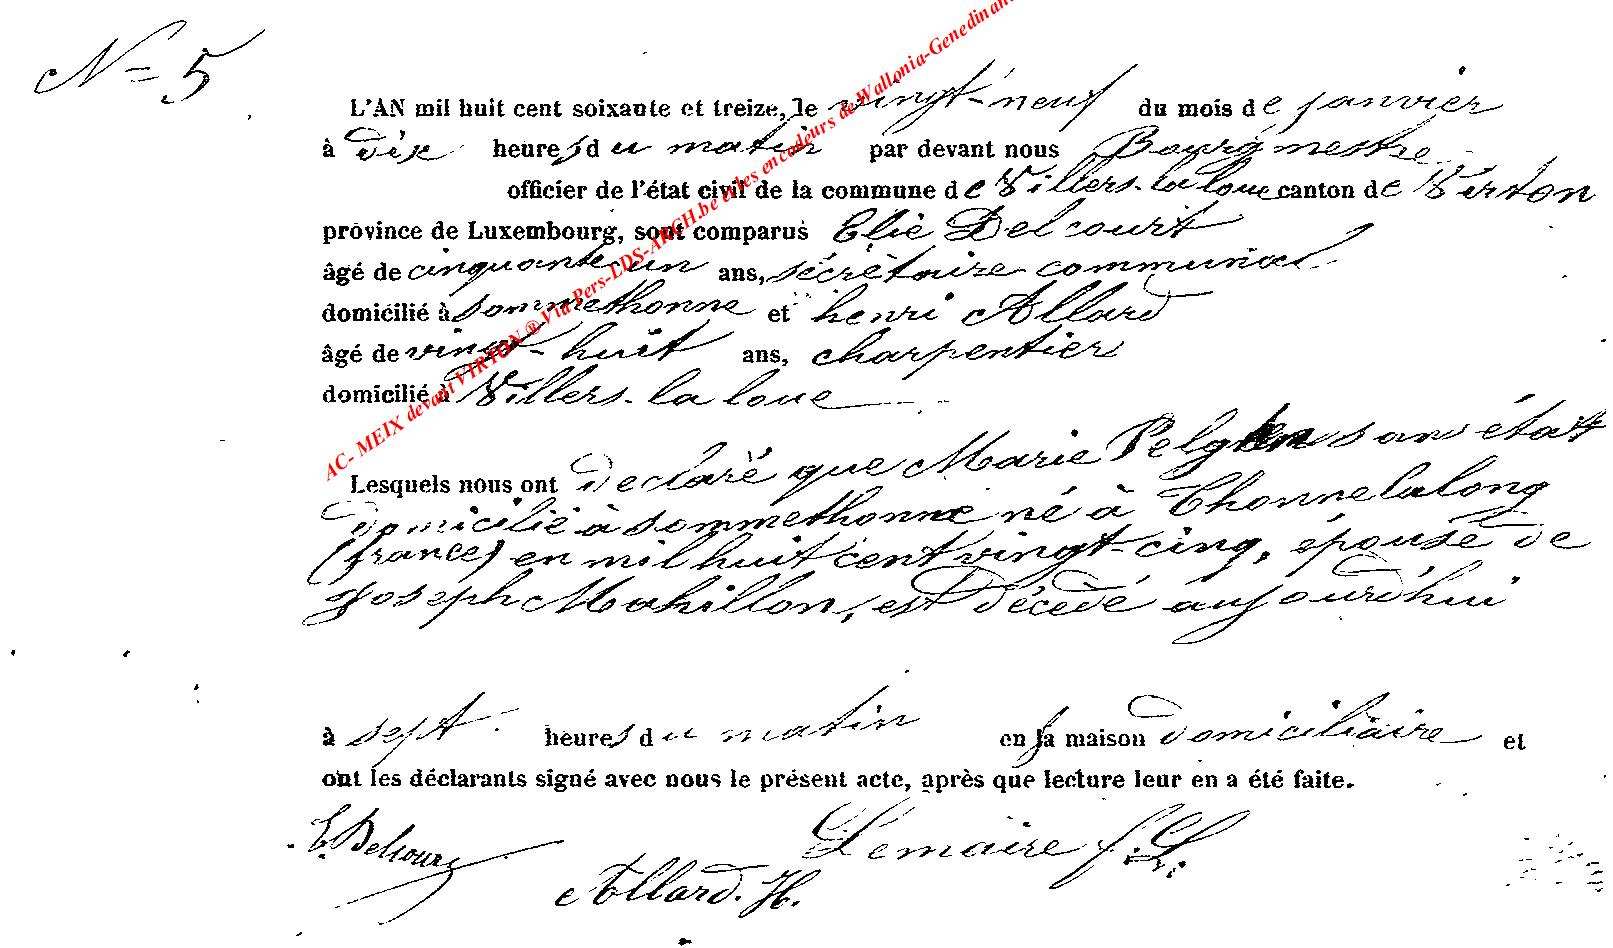 N= 5
L'AN mil huit cent soixante et treize, le vingt-neuf du mois de janvier
à dix heures du matin par devant nous Bourgmestre
officier de l'état civil de la commune de Villers-la loue canton de Virton
province de Luxembourg, sont comparus Elie Delcourt
âgé de cinquante-un ans, sécrétaire communal
domicilié à sommethonne et henri Allard
âgé de vingt-huit ans, charpentier
domicilié à Villers-la loue
Lesquels nous ont déclaré que Marie sans état
domicilié à sommethonne né à Thonnelalong
(france) en mil huit cent vingt-cinq, épouse de
Joseph Mahillon, est décédé aujourd'hui
à sept heures du matin en sa maison domiciliaire et
ont les déclarants signé avec nous le présent acte, après que lecture leur en a été faite.
E. Delcourt Lemaire f. L.
Allard. H.
AC- MEIX devant VIRTON ® Via Pers-LDS-ARCH.be et les encodeurs de Wallonia-Genedinant